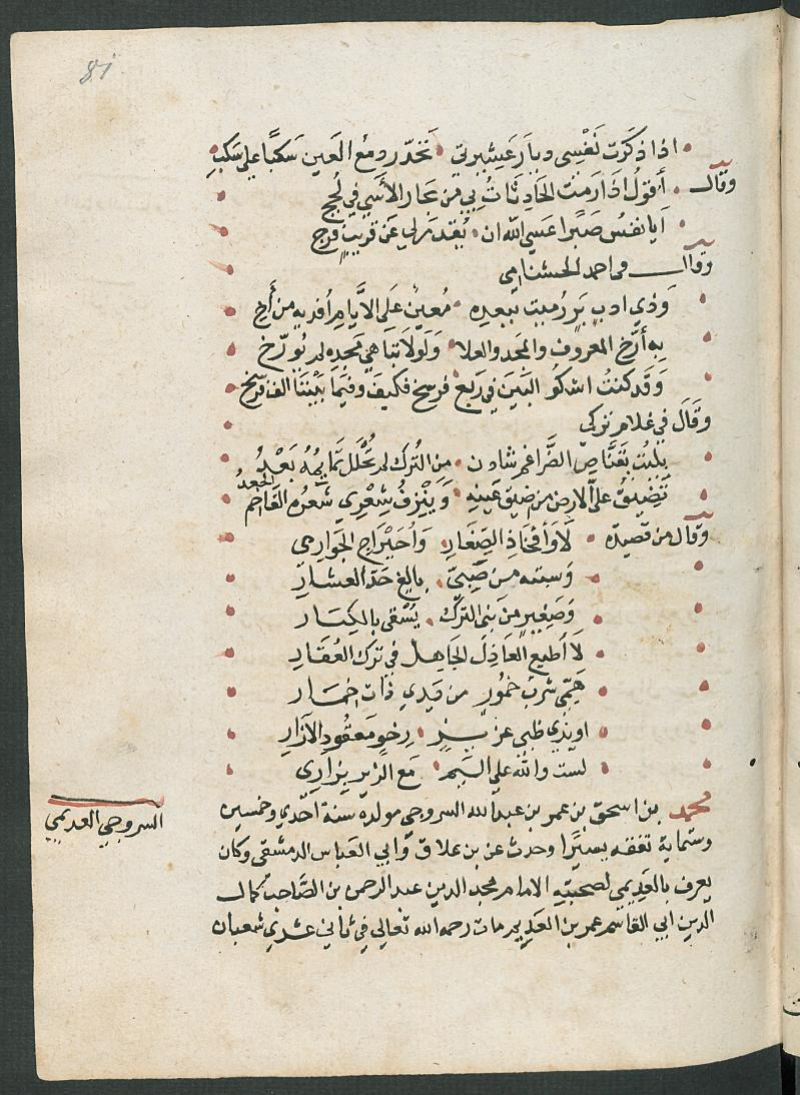 81
اذا ذكرت نفسي ديار عشيرتي تحدّر دمع العين سكبًا على سكب
وقال أقول اذا رمت الحادثات بي من بحار الأسي في لجج
أيا نفس صبرا عسي الله ان يقدر لي عن قريب فرج
وقال في احمد الخشنامي
وذي ادب بر رميت ببعده معين على الايام أفديه من أخ
به أرّخ المعروف والمجد والعلا ولولا تناهي مجده لم يورّخ
وقد كنت اشكو البين في ربع فرسخ فكيف وفيما بيننا الف فرسخ
وقال في غلام تركي
بليت بقنّاص الضراغم شادن من الترك لم تحلل تمايمه بعد
تضيق عليّ الارض من ضيق عينه وينزف شعري شعره الفاحم الجعد
وقال من قصيدة لا وأفخاذ الصغار واحيراج الجواري
وسته من صبيّ بالغ حد العشار
وصغير من بني الترك يسقى بالكبار
لا أطيع العاذل الجاهل في ترك العقار
همّي شرب خمور من يدي ذات خمار
او يدي ظبي غرير رخو معقود الازار
لست والله علي البم مع الزير بزاري
محمد بن اسحق بن عمر بن عبد الله السروجي مولده سنة احدي وخمسين
وستماية تفقه يسيرا وحدث عن بن علاق وابي العباس الدمشقي وكان
يعرف بالعديمي لصحبته الامام مجد الدين عبد الرحمن بن الصاحب كمال
الدين ابي القاسم عمر بن العديم مات رحمه الله تعالى في ثاني عشري شعبان
السروجي العديمي